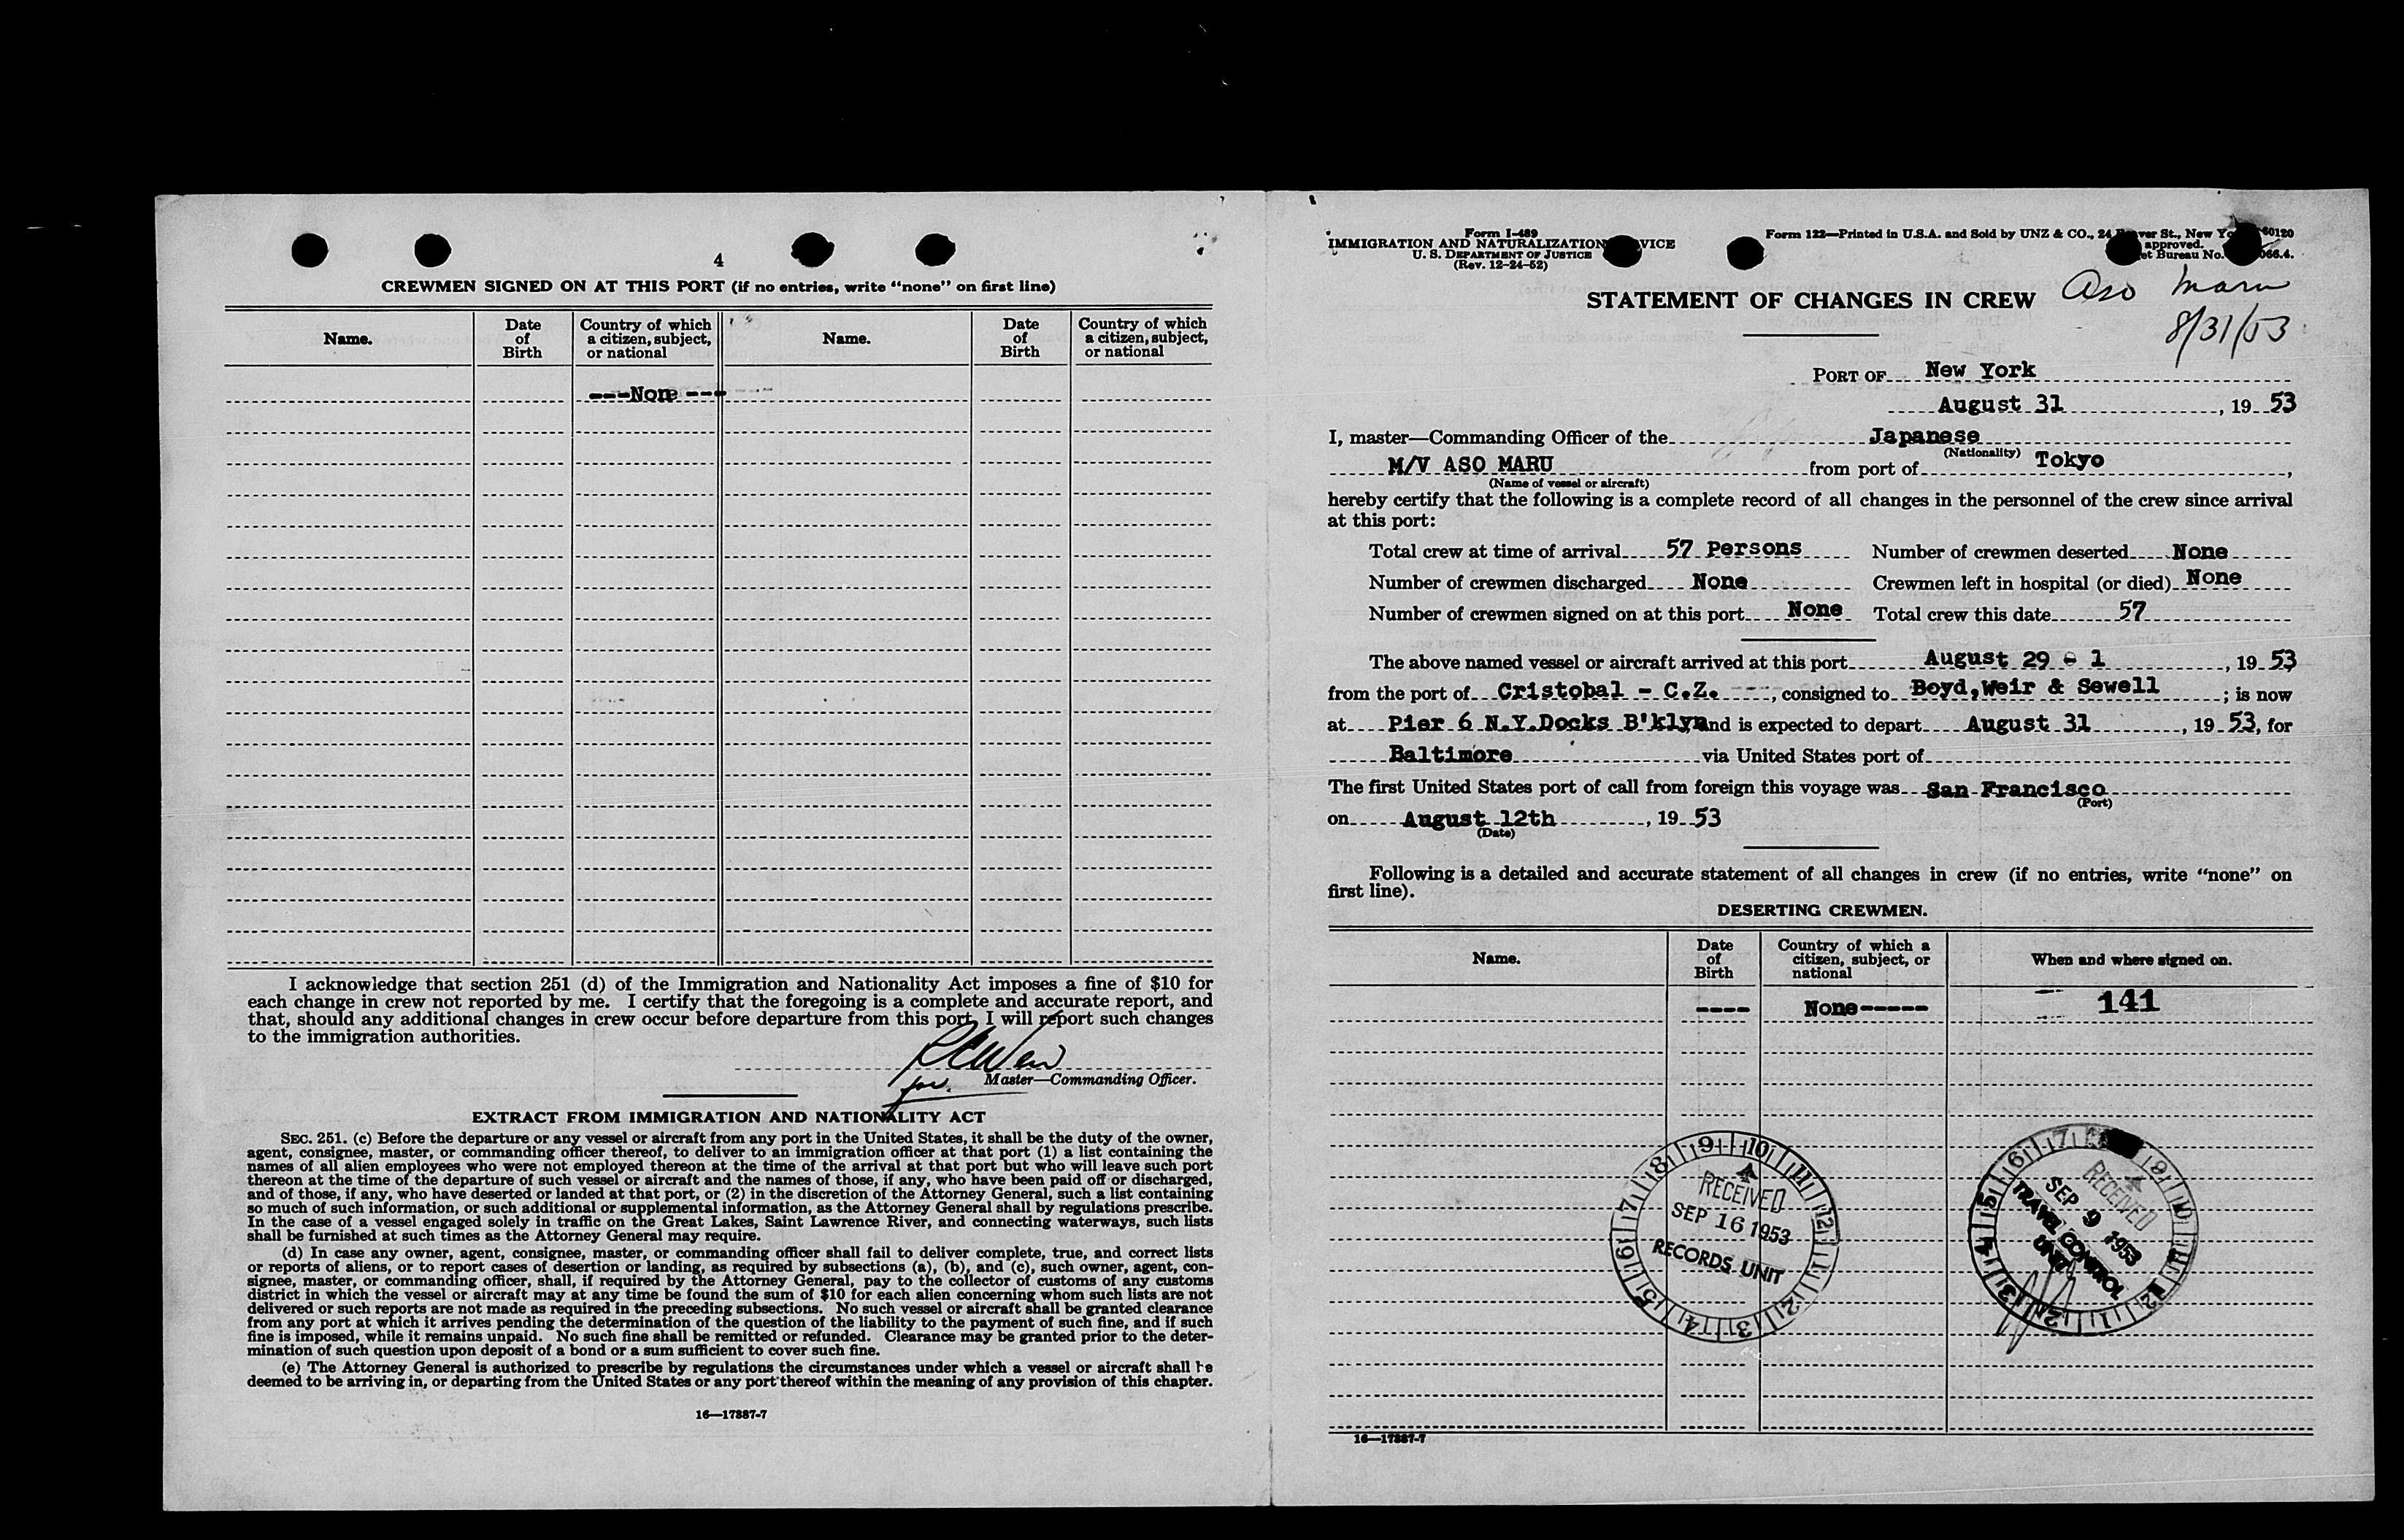 4
CREWMEN SIGNED ON AT THIS PORT (if no entries, write “none” on first line)
Name. Date of Birth Country of which a citizen, subject, or national Name. Date of Birth Country of which a citizen, subject, or national
---None ---
I acknowledge that section 251 (d) of the Immigration and Nationality Act imposes a fine of $10 for
each change in crew not reported by me. I certify that the foregoing is a complete and accurate report, and
that, should any additional changes in crew occur before departure from this port, I will report such changes
to the immigration authorities.
for. Master—Commanding Officer.
EXTRACT FROM IMMIGRATION AND NATIONALITY ACT
SEC. 251. (c) Before the departure or any vessel or aircraft from any port in the United States, it shall be the duty of the owner,
agent, consignee, master, or commanding officer thereof, to deliver to an immigration officer at that port (1) a list containing the
names of all alien employees who were not employed thereon at the time of the arrival at that port but who will leave such port
thereon at the time of the departure of such vessel or aircraft and the names of those, if any, who have been paid off or discharged,
and of those, if any, who have deserted or landed at that port, or (2) in the discretion of the Attorney General, such a list containing
so much of such information, or such additional or supplemental information, as the Attorney General shall by regulations prescribe.
In the case of a vessel engaged solely in traffic on the Great Lakes, Saint Lawrence River, and connecting waterways, such lists
shall be furnished at such times as the Attorney General may require.
(d) In case any owner, agent, consignee, master, or commanding officer shall fail to deliver complete, true, and correct lists
or reports of aliens, or to report cases of desertion or landing, as required by subsections (a), (b), and (c), such owner, agent, con-
signee, master, or commanding officer, shall, if required by the Attorney General, pay to the collector of customs of any customs
district in which the vessel or aircraft may at any time be found the sum of $10 for each alien concerning whom such lists are not
delivered or such reports are not made as required in the preceding subsections. No such vessel or aircraft shall be granted clearance
from any port at which it arrives pending the determination of the question of the liability to the payment of such fine, and if such
fine is imposed, while it remains unpaid. No such fine shall be remitted or refunded. Clearance may be granted prior to the deter-
mination of such question upon deposit of a bond or a sum sufficient to cover such fine.
(e) The Attorney General is authorized to prescribe by regulations the circumstances under which a vessel or aircraft shall be
deemed to be arriving in, or departing from the United States or any port thereof within the meaning of any provision of this chapter.
16—17887-7
Form I-489
IMMIGRATION AND NATURALIZATION
U. S. DEPARTMENT OF JUSTICE
(Rev. 12-24-52)
Form 122—Printed in U.S.A. and Sold by UNZ & CO., 24 St., New
approved.
Bureau No.
Aso Maru
8/31/53
STATEMENT OF CHANGES IN CREW
PORT OF New York
August 31, 19 53
I, master—Commanding Officer of the Japanese
(Nationality)
M/V ASO MARU from port of Tokyo,
(Name of vessel or aircraft)
hereby certify that the following is a complete record of all changes in the personnel of the crew since arrival
at this port:
Total crew at time of arrival 57 Persons Number of crewmen deserted None
Number of crewmen discharged None Crewmen left in hospital (or died) None
Number of crewmen signed on at this port None Total crew this date 57
The above named vessel or aircraft arrived at this port August 29 - 1, 19 53
from the port of Cristobal - C.Z., consigned to Boyd,Weir & Sewell; is now
at Pier 6 N.Y.Docks B'klyn and is expected to depart August 31, 19 53, for
Baltimore via United States port of
The first United States port of call from foreign this voyage was San Francisco
(Port)
on August 12th, 19 53
(Date)
Following is a detailed and accurate statement of all changes in crew (if no entries, write “none” on
first line).
DESERTING CREWMEN.
Name. Date of Birth Country of which a citizen, subject, or national When and where signed on.
---- None----- 141
RECEIVED
SEP 16 1953
RECORDS UNIT
RECEIVED
SEP 9 1953
TRAVEL CONTROL
UNIT
16—17887-7